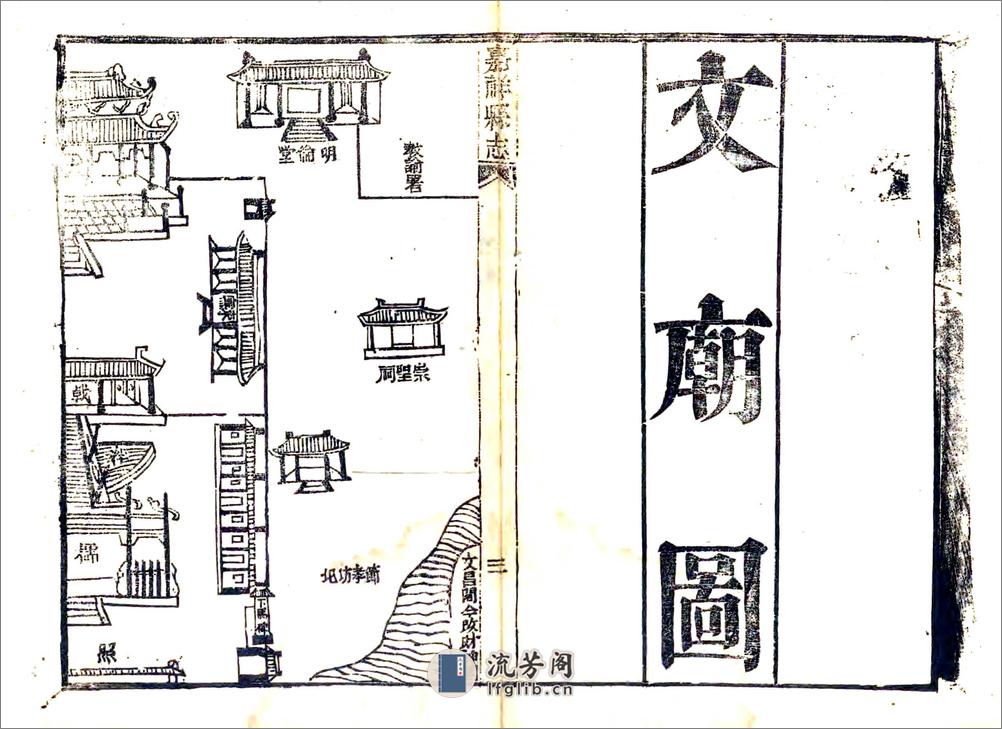 文廟圖
嘉祥縣志
三
教諭署
明倫堂
崇聖祠
戟
泮
櫺
節孝坊北
文昌閣今改財神
下馬碑
照
流芳阁
lfglib.cn